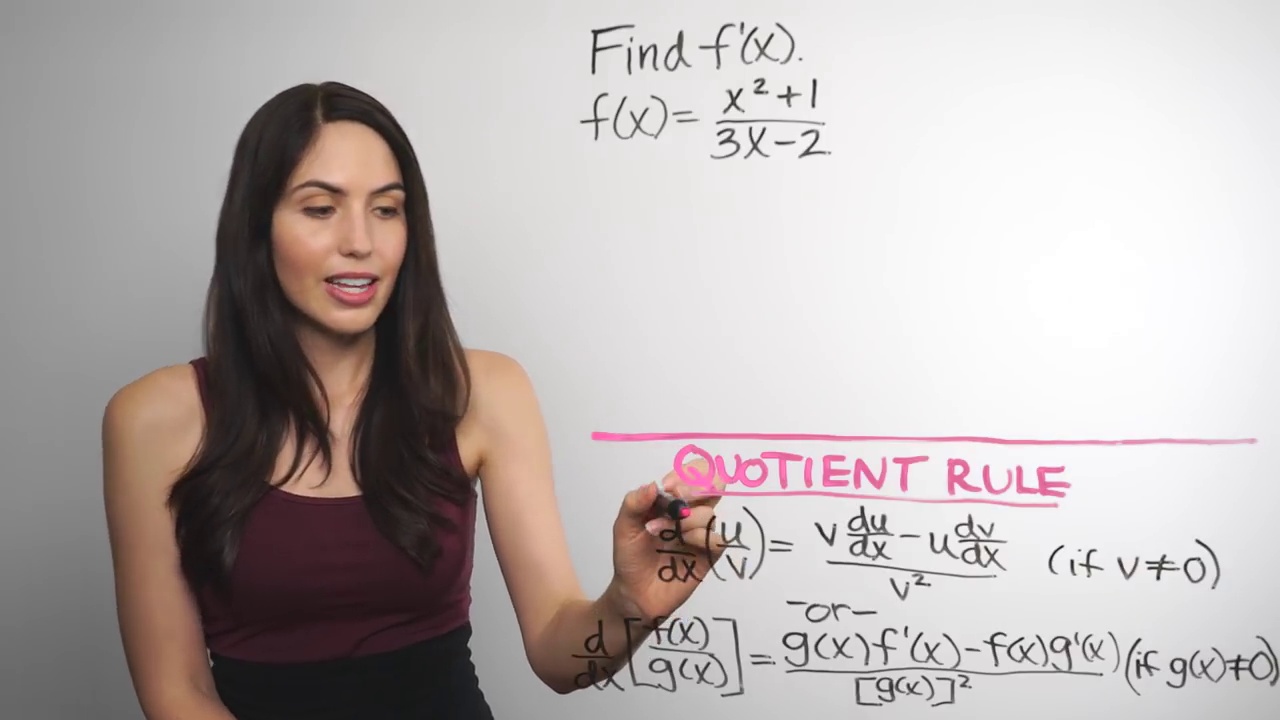 Find f'(x).
f(x) = (x² + 1)/(3x - 2)
QUOTIENT RULE
d/dx (u/v) = (v du/dx - u dv/dx)/v² (if v ≠ 0)
-or-
d/dx [f(x)/g(x)] = (g(x)f'(x) - f(x)g'(x))/[g(x)]² (if g(x) ≠ 0)